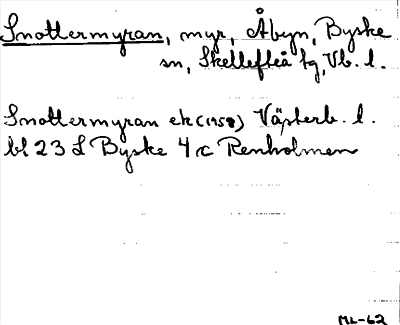 Snottermyran, myr, Åbyn, Byske
sn, Skellefteå tg, Vb. l.
Snottermyran ek (1958) Västerb. l.
bl 23 L Byske 4 c Renholmen
ML-62